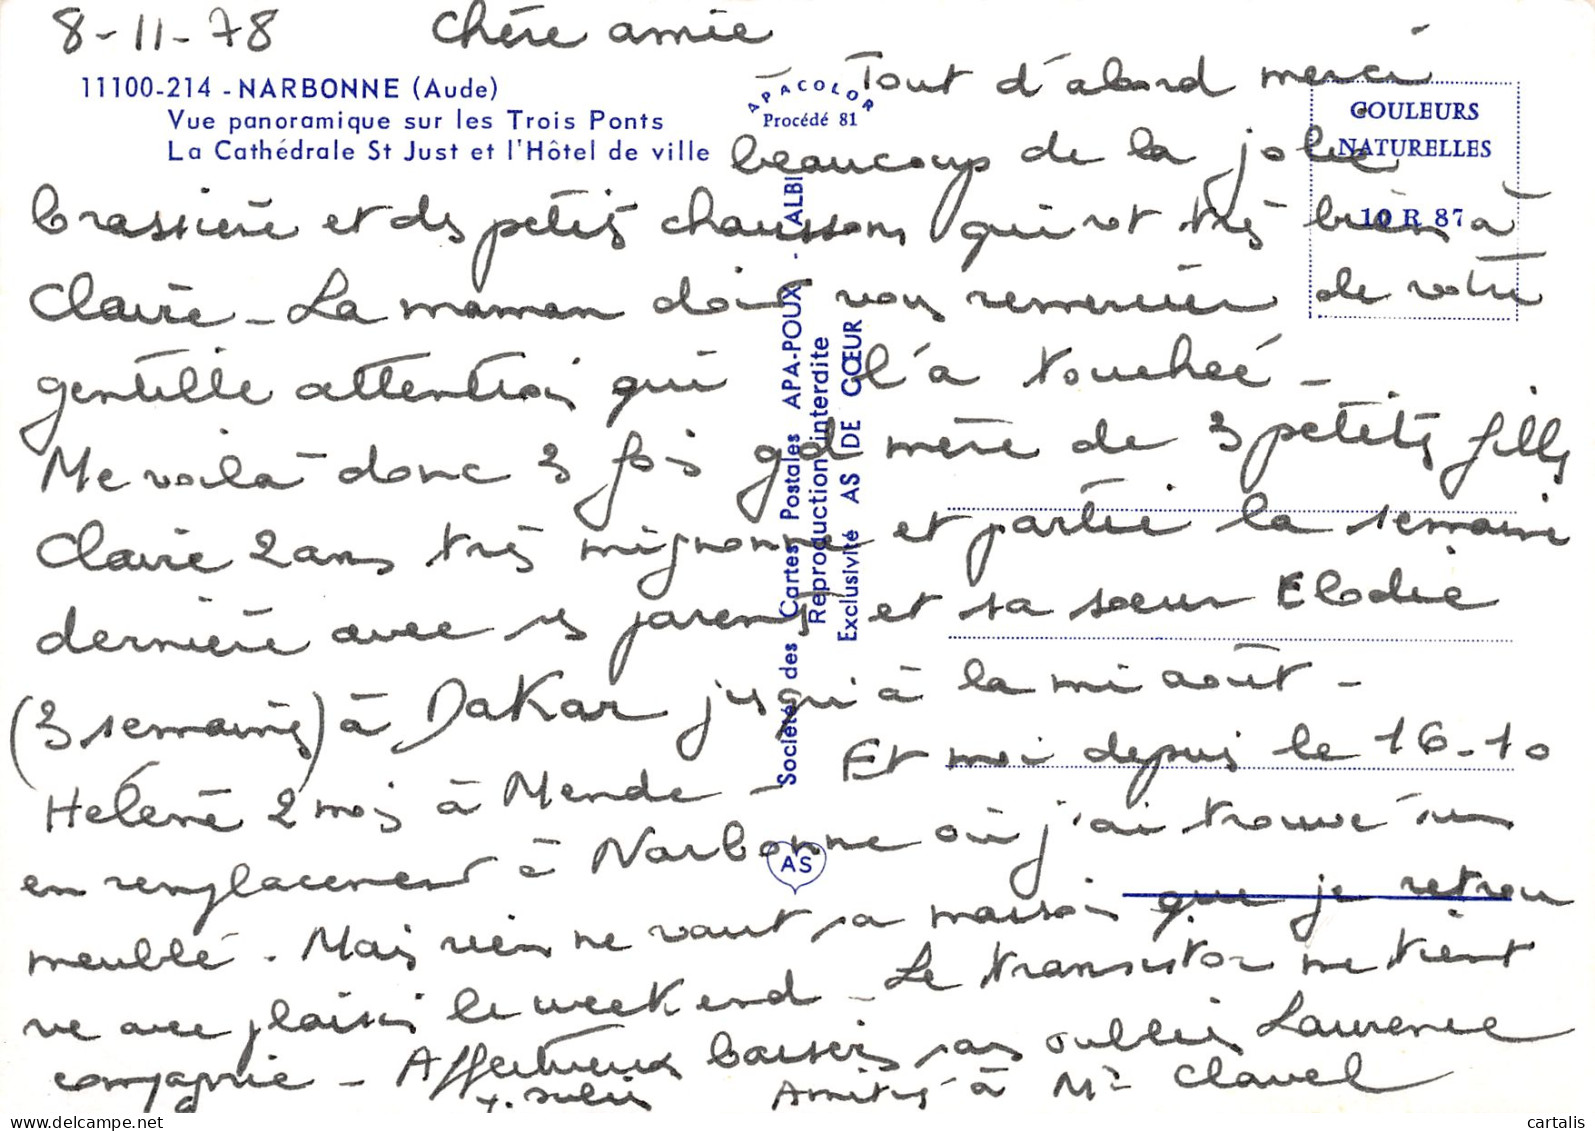 8-11-78 Chère amie
11100-214 - NARBONNE (Aude)
Vue panoramique sur les Trois Ponts
La Cathédrale St Just et l'Hôtel de ville
APACOLOR
Procédé 81
COULEURS
NATURELLES
10 R 87
Société des Cartes Postales APA-POUX - ALBI
Reproduction interdite
Exclusivité AS DE CŒUR
AS
Tout d'abord merci
beaucoup de la jolie
brassière et des petits chaussons qui vot très bien à
Claire - La maman doit vous remercier de votre
gentille attention qui l'a touchée -
Me voilà donc 3 fois gd mère de 3 petites filles
Claire 2 ans très mignonne et partie la semaine
dernière avec ses parents et sa sœur Elodie
(3 semaines) à Dakar jusqu'à la mi août -
Hélène 2 mois à Mende - Et moi depuis le 16-10
en remplacement à Narbonne où j'ai trouvé un
meublé. Mais rien ne vaut sa maison que je retrou
ve avec plaisir le weekend - Le transistor me tient
compagnie - Affectueux baisers sans oublier Laurence
Amitiés à Mr Clavel
cartalis